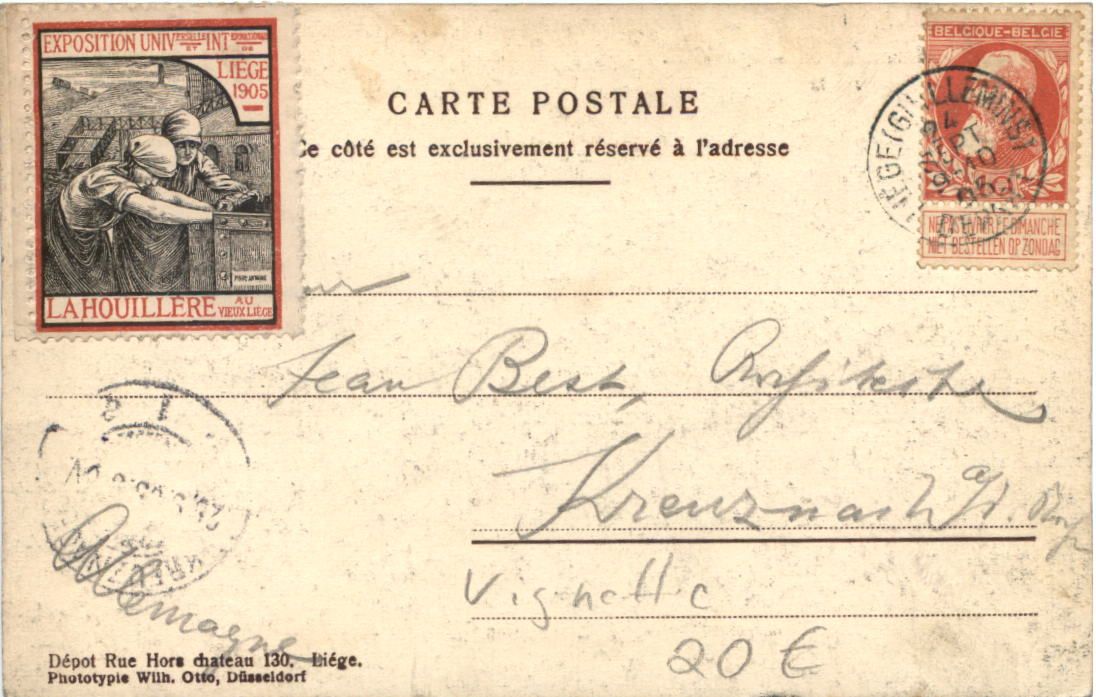 EXPOSITION UNIVERSELLE ET INTERNATIONALE DE
LIÈGE
1905
LA HOUILLÈRE AU
VIEUX LIÈGE
CARTE POSTALE
Ce côté est exclusivement réservé à l'adresse
BELGIQUE-BELGIE
NE PAS LIVRER LE DIMANCHE
NIET BESTELLEN OP ZONDAG
LIÉGE (GUILLEMINS)
Jean Best,
Kreuznach a/d.
Allemagne
Vignette
20 €
Dépot Rue Hors chateau 130. Liége.
Phototypie Wilh. Otto, Düsseldorf